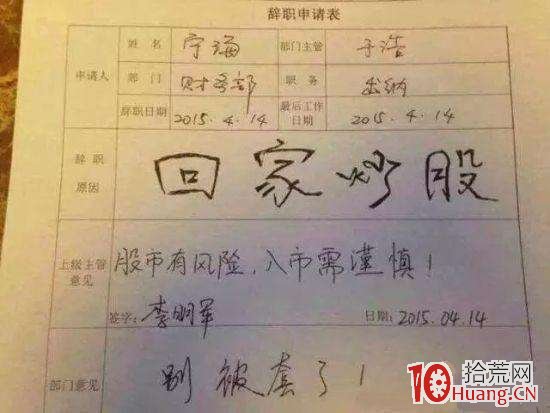 辞职申请表
申请人 姓名 宁海 部门主管 于浩
部门 财务部 职务 出纳
辞职日期 2015.4.14 最后工作日期 2015.4.14
辞职原因 回家炒股
上级主管意见 股市有风险，入市需谨慎！
签字: 李明军 日期: 2015.04.14
部门意见 别被套了！
10 拾荒网
Huang.CN